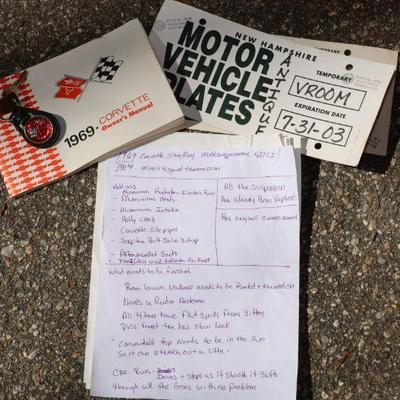 1969 CORVETTE
Owner's Manual
NEW HAMPSHIRE
MOTOR
VEHICLE
PLATES
ANTIQUE
TEMPORARY
VROOM
EXPIRATION DATE
7-31-03
1969 Corvette Sting Ray Matching numbers 427 L
4 speed transmission
Add ons
Aluminum Radiator Electric Fans
- Aluminum Heads
- Aluminum Intake
- Holly Carb
- Corvette Side pipes
- Serpitine Belt Drive Setup
- Aftermarket Seats
All the Suspension
has already Been Replaced
Has original owners manual
What Needs to be finished
Rear lower Valance needs to be Painted + mounted on
Needs a Radio Antenna
All 4 tires have flat spots from sitting
Pass front tire has slow leak
- Convertable top needs to be in the sun
So it can stretch out a little.
Car Runs Drives + stops as it should it shifts
through all the Gears with no problem